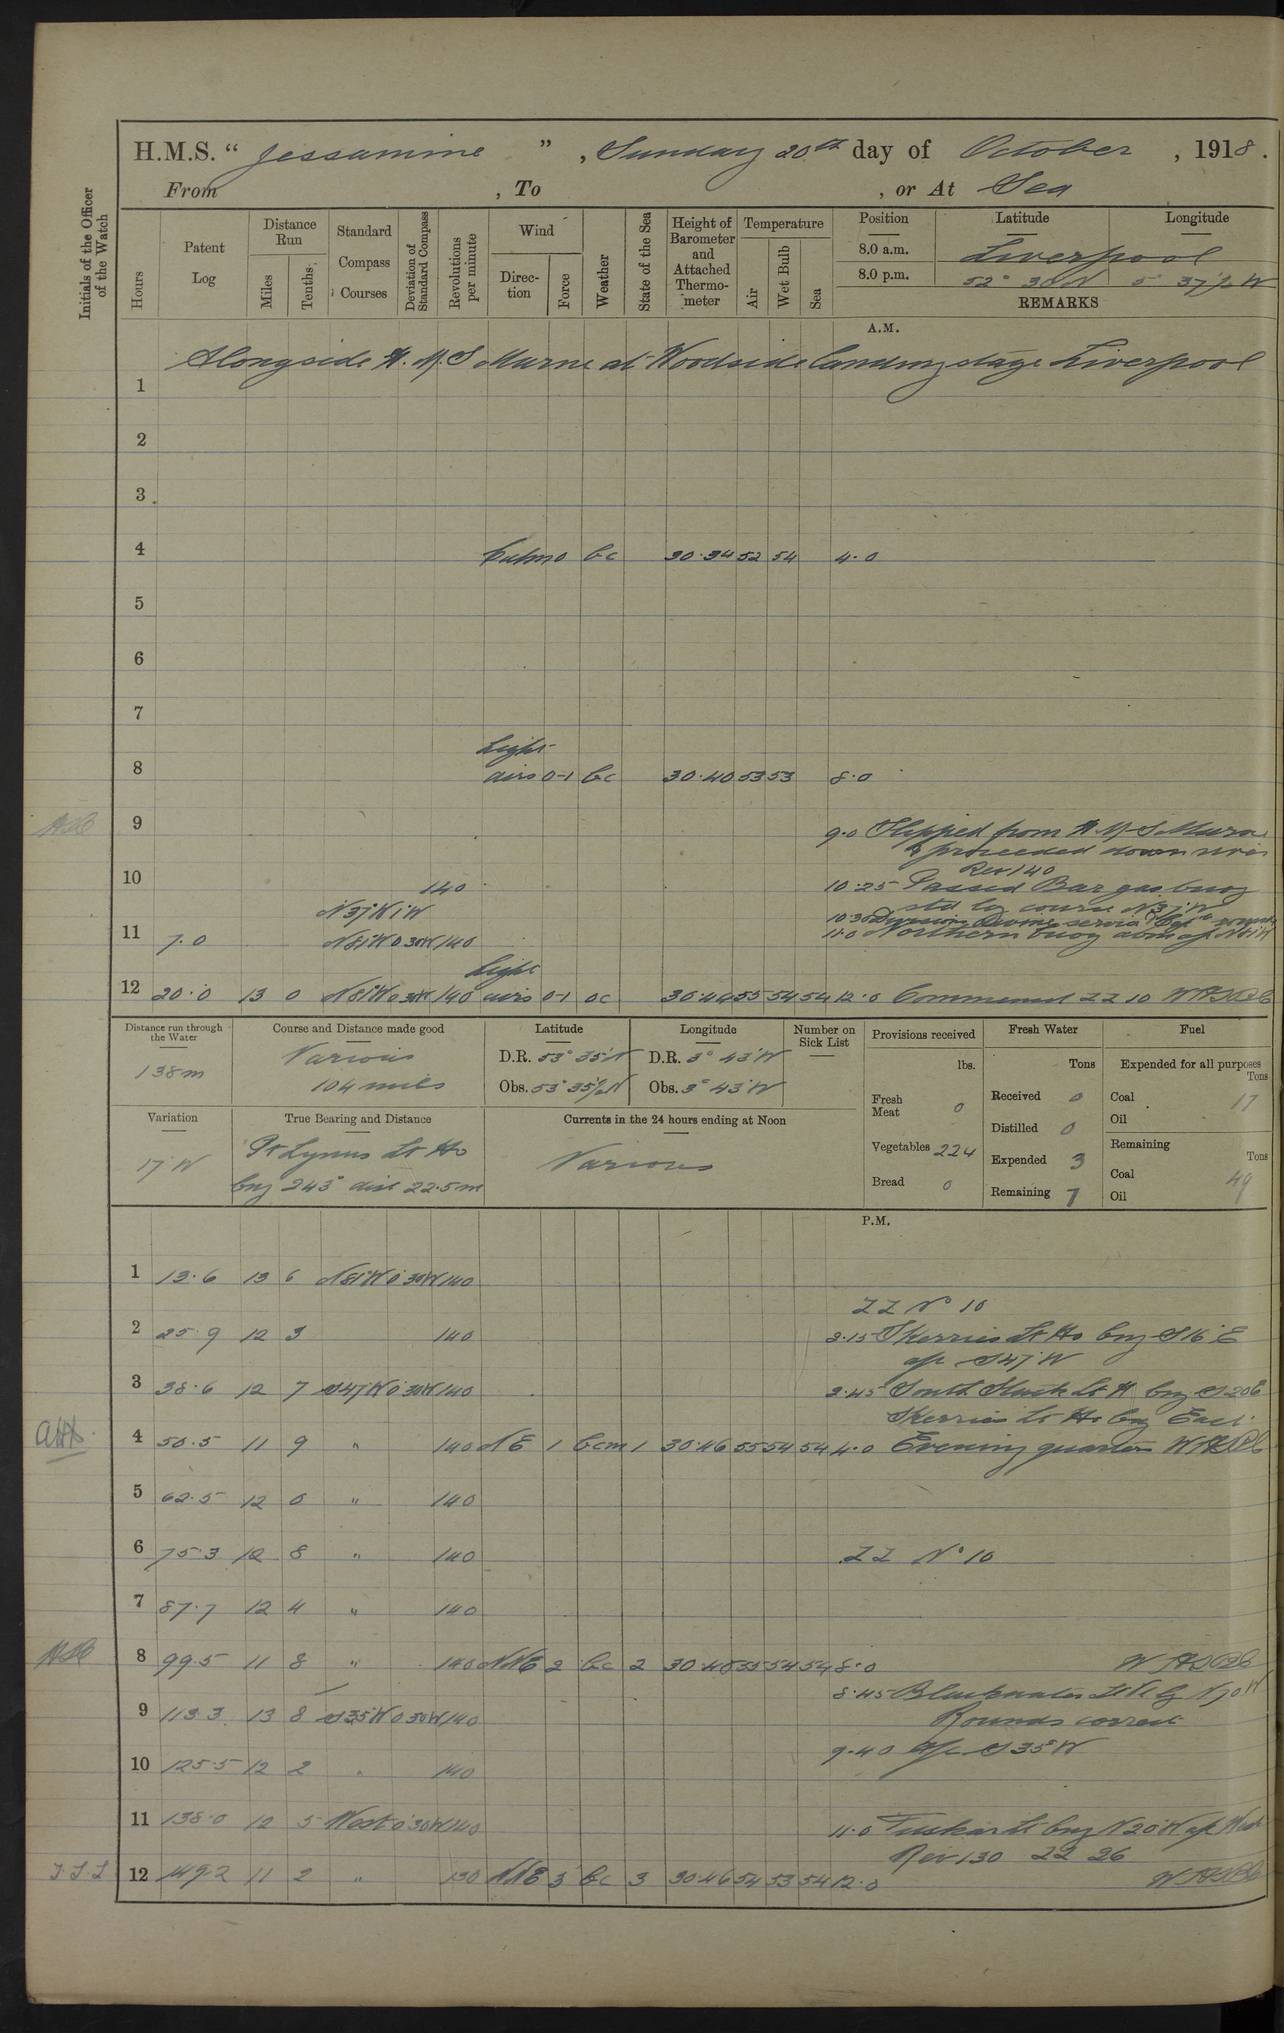 H.M.S. “ Jessamine ” , Sunday 20th day of October , 1918 .
From , To , or At Sea
Initials of the Officer of the Watch
Hours
Patent Log
Distance Run
Miles
Tenths
Standard Compass Courses
Deviation of Standard Compass
Revolutions per minute
Wind
Direction
Force
Weather
State of the Sea
Height of Barometer and Attached Thermometer
Temperature
Air
Wet Bulb
Sea
Position Latitude Longitude
8.0 a.m. Liverpool
8.0 p.m. 52° 30 N 5 37½ W
REMARKS
A.M.
Alongside H.M.S at Woodside landing stage Liverpool
1
2
3
4 Calm 0 bc 30.34 52 54 4.0
5
6
7
Light
8 airs 0-1 bc 30.40 53 53 8.0
9 9.0 Slipped from H.M.S
& proceeded down river
Rev 140
10 140 10.25 Passed Bar gas buoy
N37W
11 7.0 N81W 0 30W 140 11.0 Northern buoy
Light
12 20.0 13 0 N81W 0 30W 140 airs 0-1 oc 30.44 55 54 54 12.0 Commenced ZZ 10
Distance run through the Water
138m
Course and Distance made good
Various
104 miles
Latitude
D.R. 53° 35'N
Obs. 53° 35½N
Longitude
D.R. 3° 43'W
Obs. 3° 43'W
Number on Sick List
Provisions received
lbs.
Fresh Meat 0
Vegetables 224
Bread 0
Fresh Water
Tons
Received 0
Distilled 0
Expended 3
Remaining 7
Fuel
Expended for all purposes
Tons
Coal 17
Oil
Remaining
Tons
Coal 49
Oil
Variation
17 W
True Bearing and Distance
Pt Lynus Lt Ho
brg 243° dist 22.5m
Currents in the 24 hours ending at Noon
Various
P.M.
1 13.6 13 6 N81W 0 30W 140
ZZ No 10
2 25.9 12 3 140 2.15 Skerries Lt Ho brg S16°E
a/c S47W
3 38.6 12 7 S47W 0 30W 140 3.45 South Stack Lt H brg S20E
Skerries Lt Ho brg East.
4 50.5 11 9 " 140 NE 1 bcm 1 30.46 55 54 54 4.0 Evening quarters
5 62.5 12 0 " 140
6 75.3 12 8 " 140 ZZ No 10
7 87.7 12 4 " 140
8 99.5 11 8 " 140 NNE 2 bc 2 30.48 55 54 54 8.0
8.45 Blackwater Lt Ve
9 113.3 13 8 S35W 0 30W 140 Rounds correct
9.40 a/c S35W
10 125.5 12 2 " 140
11 138.0 12 5 West 0 30W 140 11.0 Tuskar Lt brg N20W a/c West
Rev 130 ZZ 26
12 149.2 11 2 " 130 NNE 3 bc 3 30.46 54 53 54 12.0